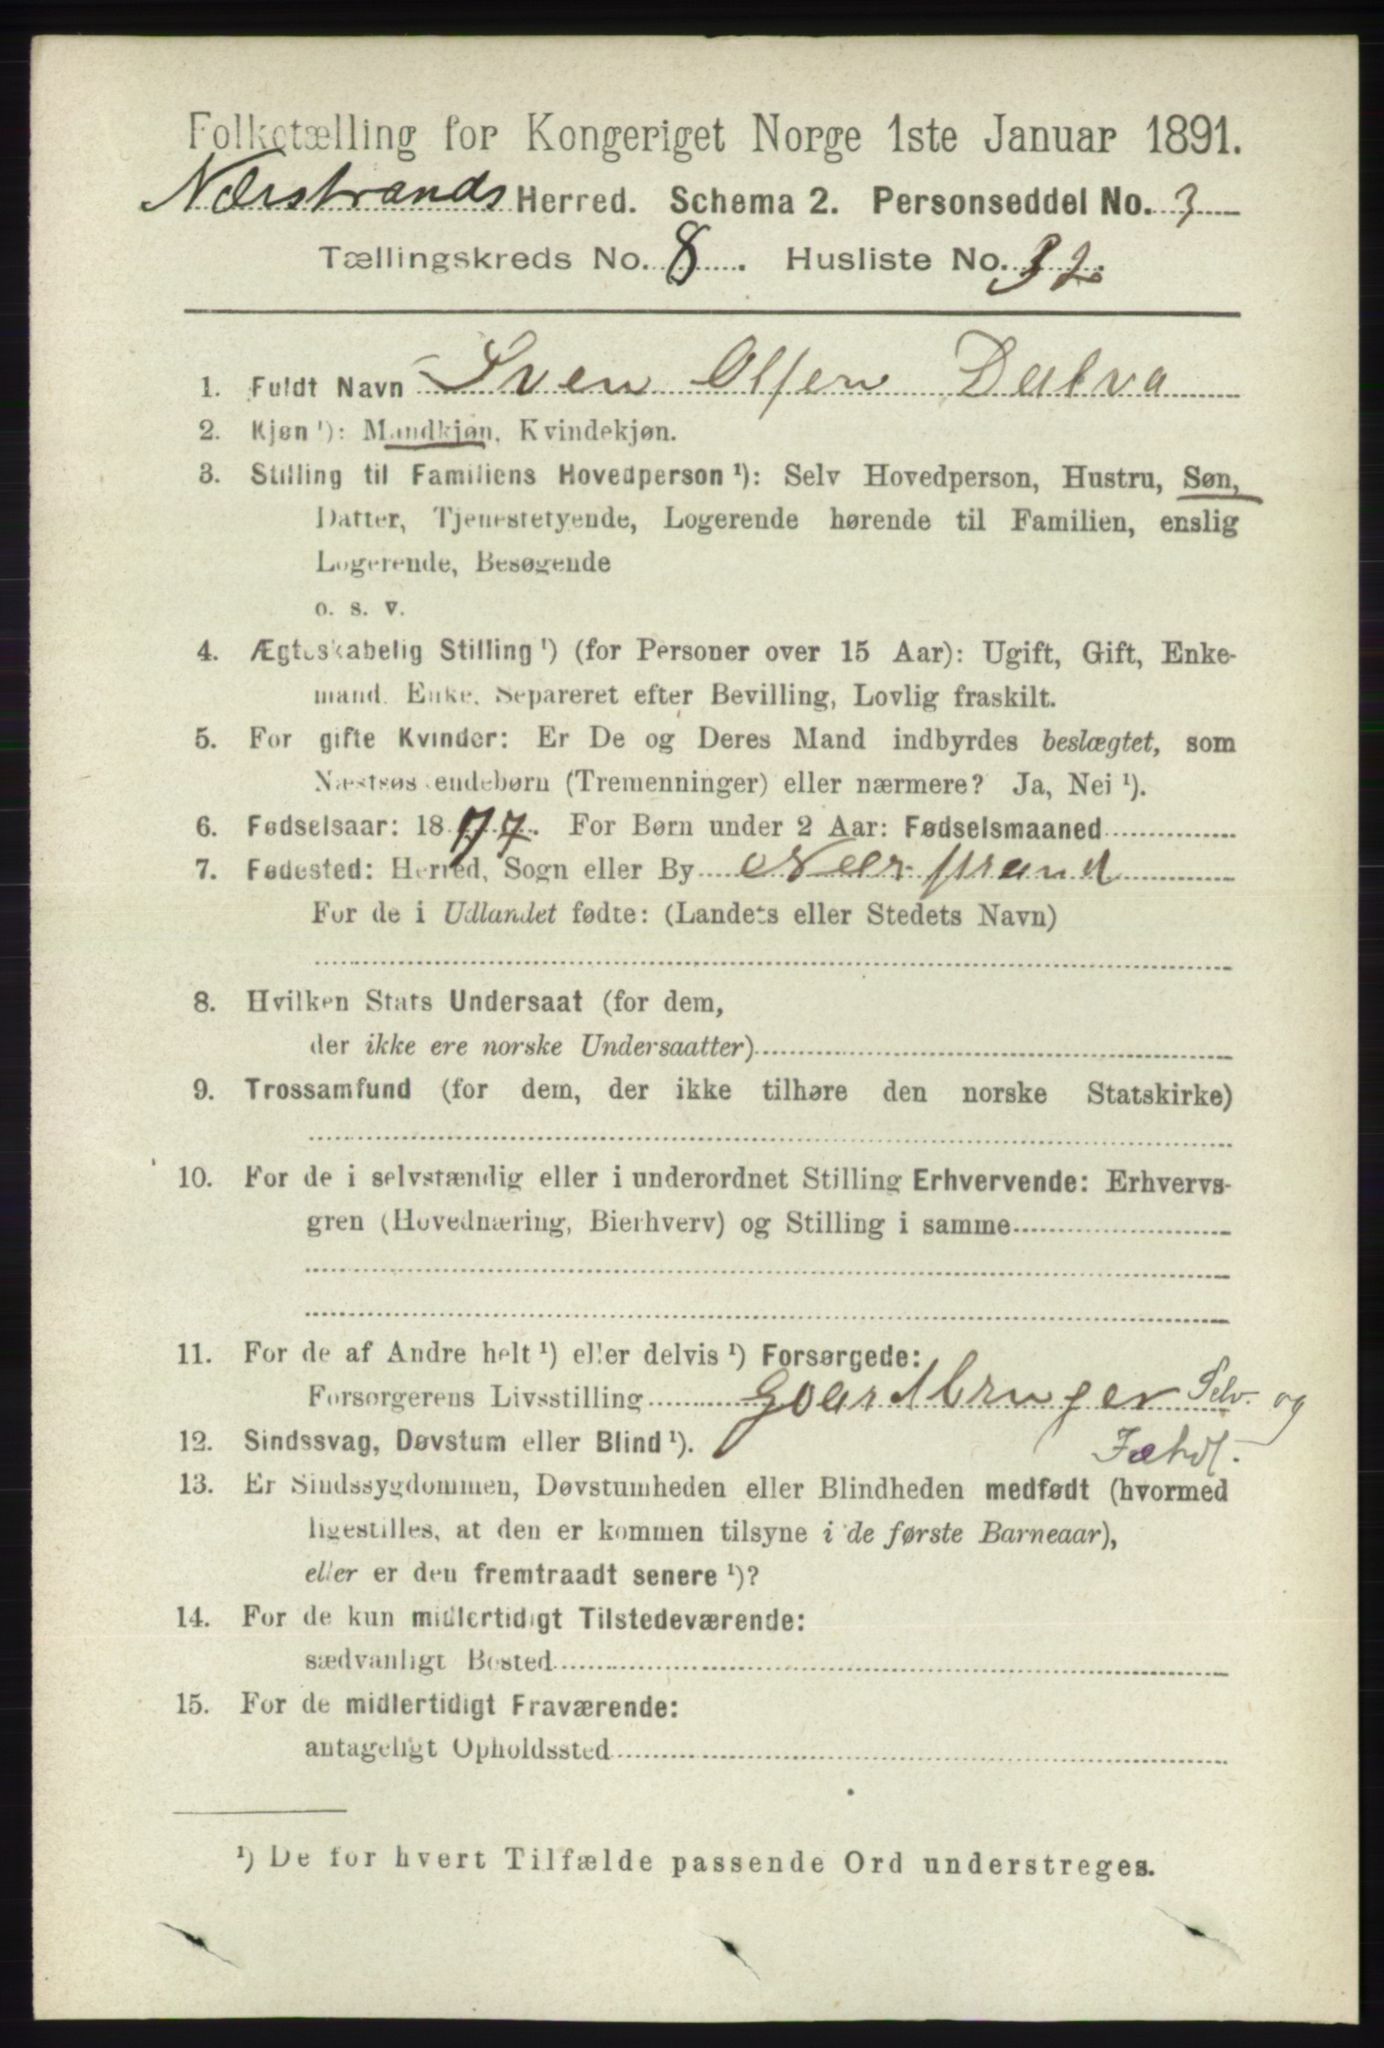 Folketælling for Kongeriget Norge 1ste Januar 1891.
Nærstrands Herred. Schema 2. Personseddel No. 3
Tællingskreds No. 8. Husliste No. 32.
1. Fuldt Navn Sven Olsen Dalva
2. Kjøn ¹): Mandkjøn, Kvindekjøn.
3. Stilling til Familiens Hovedperson ¹): Selv Hovedperson, Hustru, Søn,
Datter, Tjenestetyende, Logerende hørende til Familien, enslig
Logerende, Besøgende
o. s. v.
4. Ægteskabelig Stilling ¹) (for Personer over 15 Aar): Ugift, Gift, Enke-
mand, Enke, Separeret efter Bevilling, Lovlig fraskilt.
5. For gifte Kvinder: Er De og Deres Mand indbyrdes beslægtet, som
Næstsøskendebørn (Tremenninger) eller nærmere? Ja, Nei ¹).
6. Fødselsaar: 1877. For Børn under 2 Aar: Fødselsmaaned
7. Fødested: Herred, Sogn eller By Nerstrand
For de i Udlandet fødte: (Landets eller Stedets Navn)
8. Hvilken Stats Undersaat (for dem,
der ikke ere norske Undersaatter)
9. Trossamfund (for dem, der ikke tilhøre den norske Statskirke)
10. For de i selvstændig eller i underordnet Stilling Erhvervende: Erhvervs-
gren (Hovednæring, Bierhverv) og Stilling i samme
11. For de af Andre helt ¹) eller delvis ¹) Forsørgede:
Forsørgerens Livsstilling Goardbruger Selv. og
12. Sindssvag, Døvstum eller Blind ¹).
13. Er Sindssygdommen, Døvstumheden eller Blindheden medfødt (hvormed
ligestilles, at den er kommen tilsyne i de første Barneaar),
eller er den fremtraadt senere ¹)?
14. For de kun midlertidigt Tilstedeværende:
sædvanligt Bosted
15. For de midlertidigt Fraværende:
antageligt Opholdssted
¹) De for hvert Tilfælde passende Ord understreges.